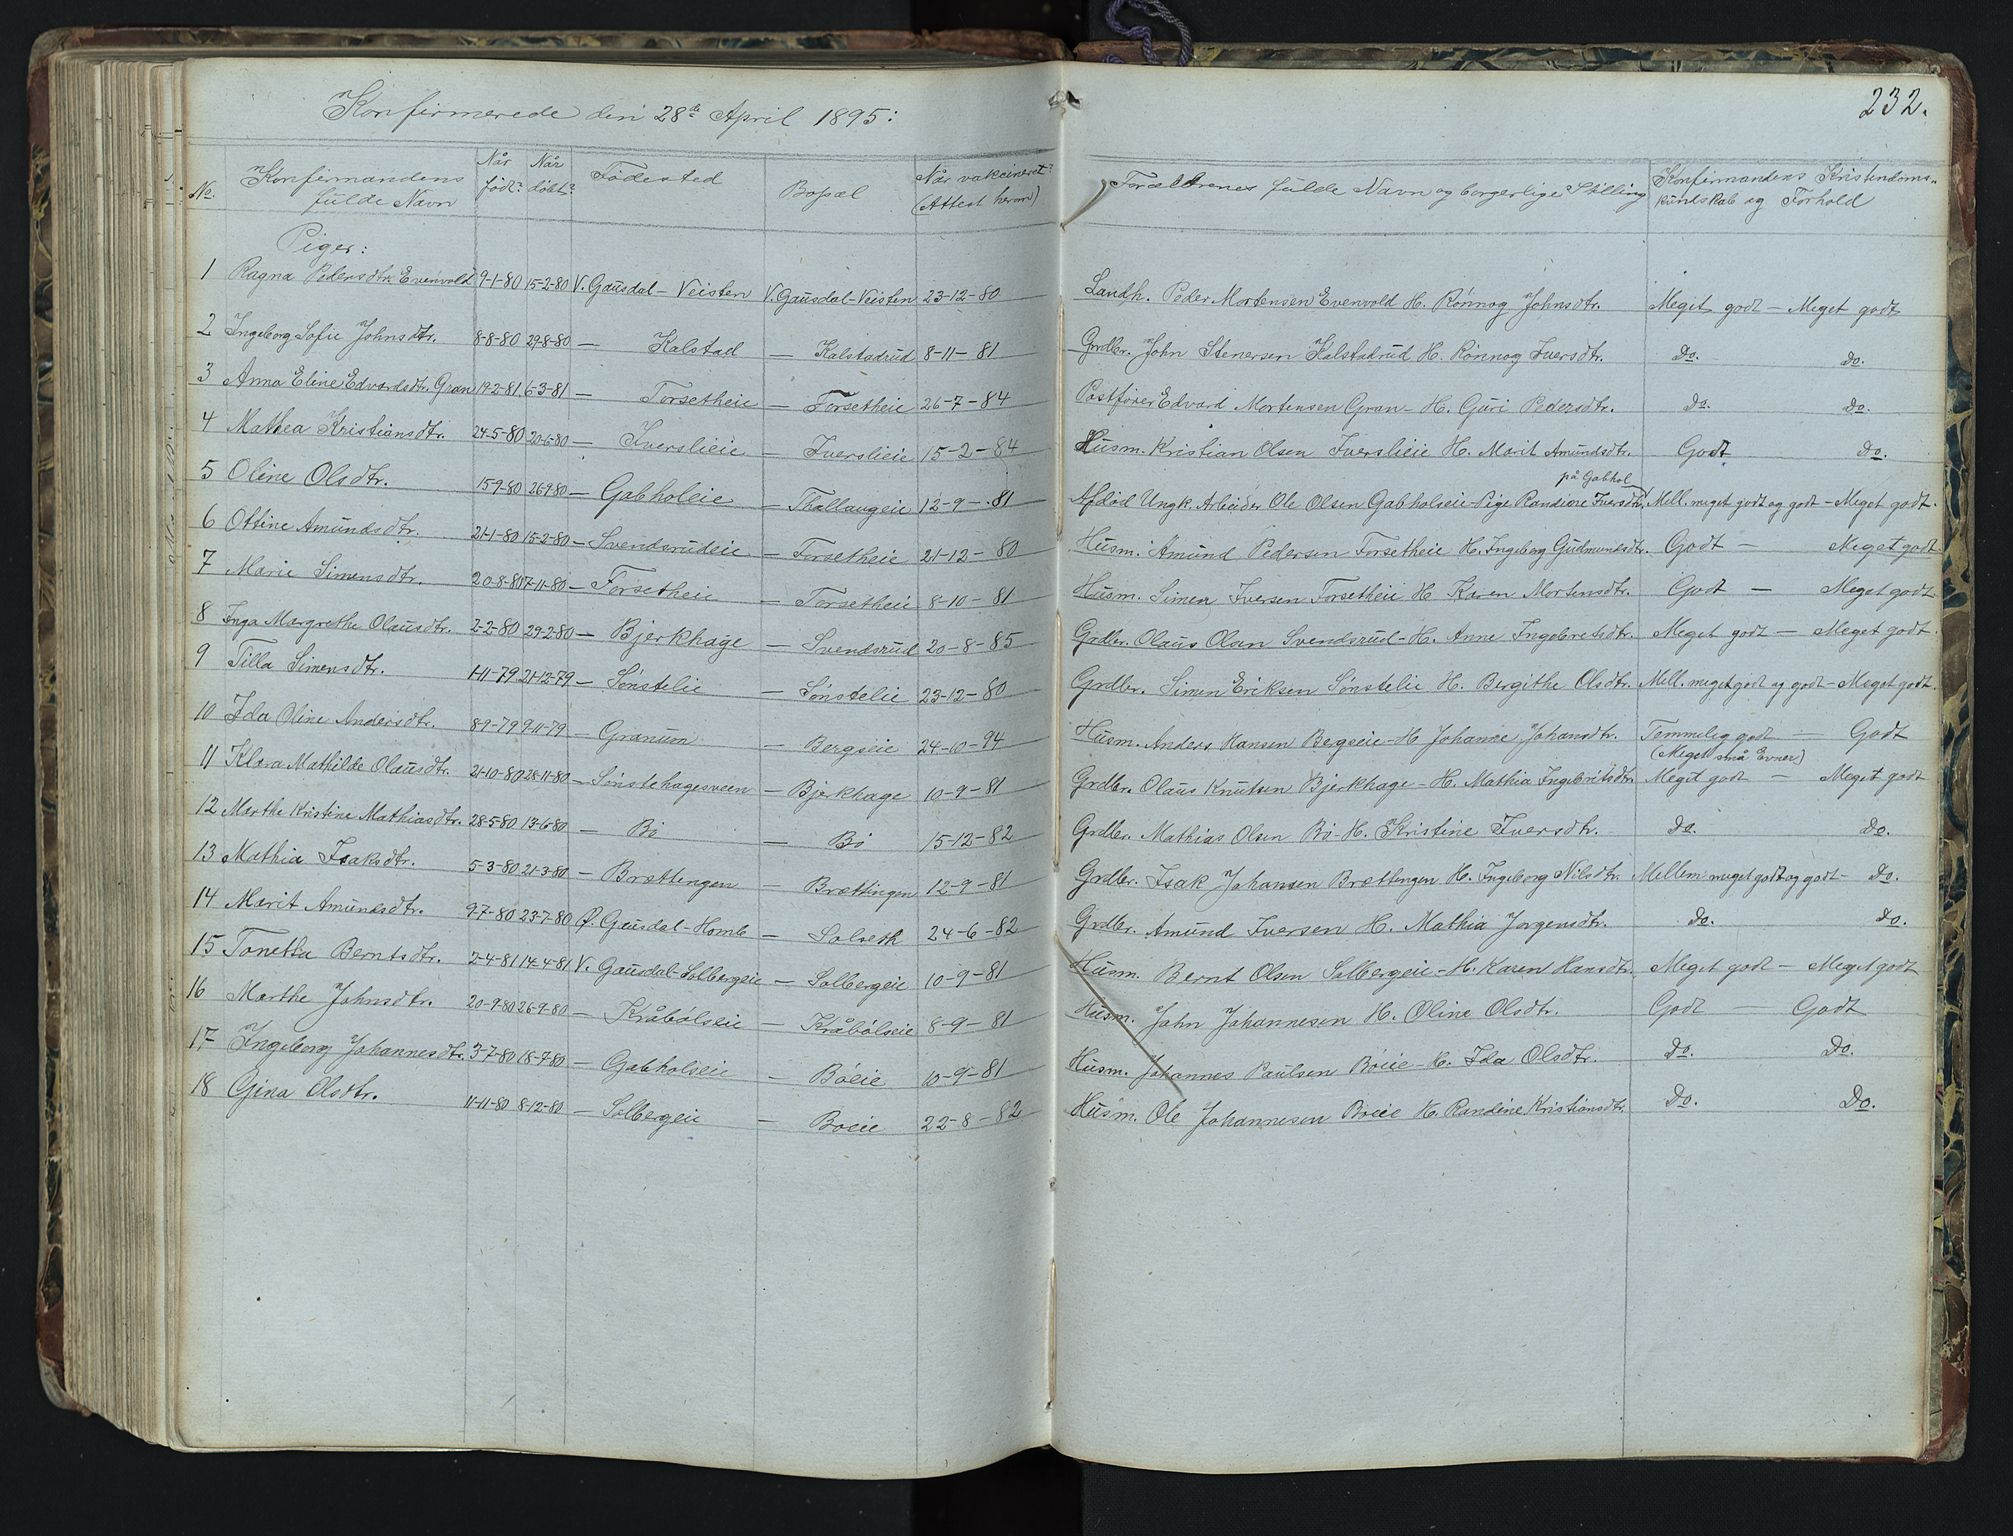 Konfirmerede den 28de April 1895:
232.
No. Konfirmandens fulde Navn Når født? Når døbt? Fødested Bopæl Når vakcineret? (Attest herom) Forældrenes fulde Navn og borgerlige Stilling Konfirmandens Kristendoms-kundskab og Forhold
Piger:
1 Ragna Pedersdtr. Evenvold 9-1-80 15-2-80 V. Gausdal - Veisten V. Gausdal - Veisten 23-12-80 Landh. Peder Mortensen Evenvold H. Rønnog Johnsdtr. Meget godt - Meget godt
2 Ingeborg Sofie Johnsdtr. 8-8-80 29-8-80 — Kalstad — Kalstadrud 8-11-81 Grdbr. John Stenersen Kalstadrud H. Rønnog Iversdtr. Do. Do.
3 Anna Eline Edvardsdtr. Gran 19-2-81 6-3-81 — Forsetheie — Forsetheie 26-7-84 Postfører Edvard Mortensen Gran - H. Guri Pedersdtr. Do. Do.
4 Mathea Kristiansdtr. 24-5-80 20-6-80 — Iverslieie — Iverslieie 15-2-84 Husm. Kristian Olsen Iverslieie H. Marit Amundsdtr. Godt Do.
på Gabhol
5 Oline Olsdtr. 15-9-80 26-9-80 — Gabholeie — Thallaugeie 12-9-81 Afdød Ungk. Arbeider Ole Olsen Gabholseie - Pige Randine Iversdtr. Mell. meget godt og godt - Meget godt.
6 Ottine Amundsdtr. 21-1-80 15-2-80 — Svendsrudeie — Forsetheie 21-12-80 Husm. Amund Pedersen Forsetheie H. Ingeborg Gudmundsdtr. Godt — Meget godt
7 Marie Simensdtr. 20-8-80 7-11-80 — Forsetheie — Forsetheie 8-10-81 Husm. Simen Iversen Forsetheie H. Karen Mortensdtr. Godt — Meget godt
8 Inga Margrethe Olausdtr. 2-2-80 29-2-80 — Bjerkhage — Svendsrud 20-8-85 Grdbr. Olaus Olsen Svendsrud - H. Anne Ingebretsdtr. Meget godt — Meget godt.
9 Tilla Simensdtr. 1-11-79 21-12-79 — Sønstelie — Sønstelie 23-12-80 Grdbr. Simen Eriksen Sønstelie H. Bergithe Olsdtr. Mell. meget godt og godt - Meget godt.
10 Ida Oline Andersdtr. 8-9-79 9-11-79 — Granum — Bergseie 24-10-94 Husm. Anders Hansen Bergseie - H. Johanne Johansdtr. Temmelig godt — Godt
(Meget små Evner)
11 Klara Mathilde Olausdtr. 21-10-80 28-11-80 — Sønstehagesveen — Bjerkhage 10-9-81 Grdbr. Olaus Knutsen Bjerkhage - H. Mathia Ingebritsdtr. Meget godt — Meget godt
12 Marthe Kristine Mathiasdtr. 28-5-80 13-6-80 — Bø — Bø 15-12-82 Grdbr. Mathias Olsen Bø - H. Kristine Iversdtr. Do. Do.
13 Mathia Isaksdtr. 5-3-80 21-3-80 — Brættingen — Brættingen 12-9-81 Grdbr. Isak Johansen Brættengen H. Ingeborg Nilsdtr. Mellem meget godt og godt - Do.
14 Marit Amundsdtr. 9-7-80 23-7-80 Ø. Gausdal - Homb — Solveth 24-6-82 Grdbr. Amund Iversen H. Mathia Jørgensdtr. Do. Do.
15 Tonetta Berntsdtr. 2-4-81 14-4-81 V. Gausdal - Solbergeie — Solbergeie 10-9-81 Husm. Bernt Olsen Solbergeie - H. Karen Hansdtr. Meget godt — Meget godt
16 Marthe Johnsdtr. 20-9-80 26-9-80 — Kråbølseie — Kråbølseie 8-9-81 Husm. John Johannesen H. Oline Olsdtr. Godt — Godt
17 Ingeborg Johannesdtr. 3-7-80 18-7-80 — Gabholseie — Bøeie 10-9-81 Husm. Johannes Paulsen Bøeie - H. Ida Olsdtr. Do. Do.
18 Gina Olsdtr. 11-11-80 8-12-80 — Solbergeie — Bøeie 22-8-82 Husm. Ole Johannesen Bøeie H. Randine Kristiansdtr. Do. Do.